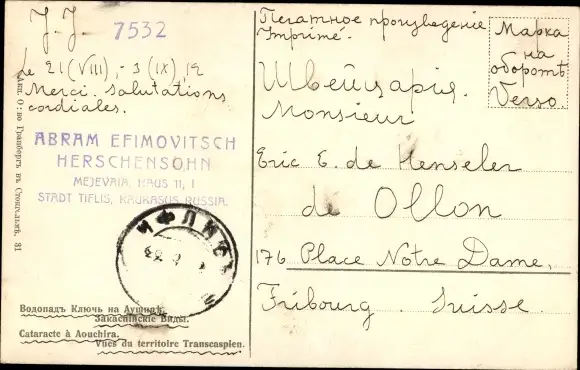 J. J. 7532
Le 21 (VIII), - 3 (IX), 12
Merci. Salutations
cordiales.
ABRAM EFIMOVITSCH
HERSCHENSOHN
MEJEVAIA, HAUS 11, I
STADT TIFLIS, KAUKASUS RUSSIA.
ТИФЛИСЪ
Водопадъ Ключъ на
Закаспійскіе Виды.
Cataracte à Aouchira.
Vues du territoire Transcaspien.
Акц. О-во Гранбергъ въ Стокгольмѣ. 31
Печатное произведеніе
Imprimé.
Марка
на
оборотѣ
Verso.
Швейцарія.
Monsieur
Eric E. de Henseler
de Ollon
176 Place Notre Dame,
Fribourg. Suisse.